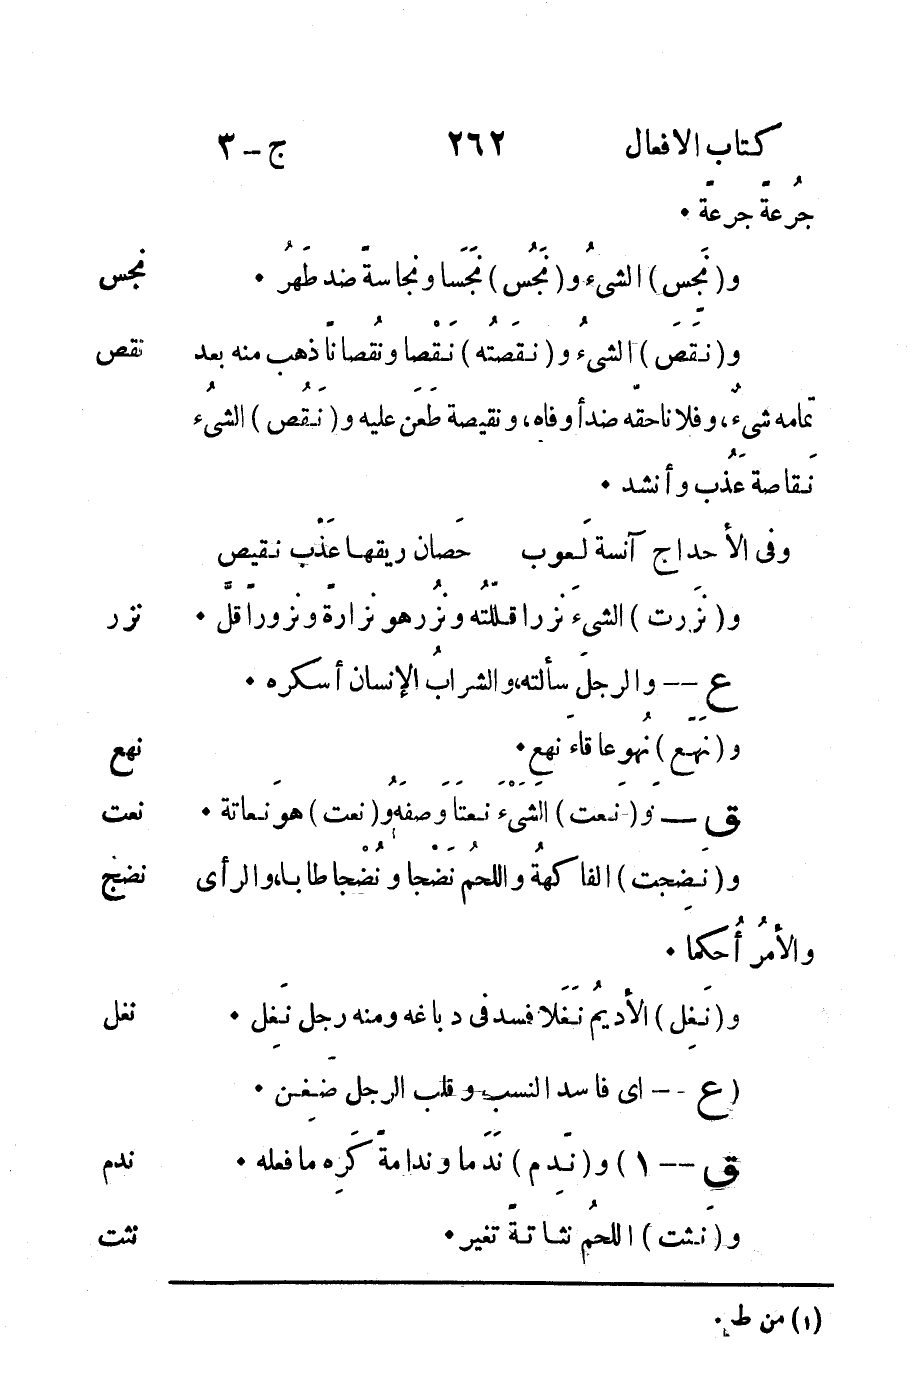 كتاب الافعال ٢٦٢ ج – ٣
جُرعةً جرعةً •
و(نَجِس) الشىءُ و(نَجُس) نَجَسا ونجاسةً ضد طهَرُ • نجس
و(نَقَص) الشىءُ و(نقصتُه) نَقْصا ونُقصاناً ذهب منه بعد نقص
تمامه شىءٌ، وفلانا حقّه ضد أوفاه، ونقيصة طَعَن عليه و(نَقُص) الشىءُ
نَقاصة عَذُب وأنشد •
وفى الأحداج آنسة لَعوب حَصان ريقها عَذْب نقيص
و(نَزَرت) الشىءَ نزرا قلّلتُه ونزُر هو نزارةً ونزوراً قلَّ • نزر
ع –– والرجلَ سألته، والشرابُ الإنسانَ أسكره •
و(نَهَع) نُهوعا قاءَ نهع • نهع
ق — وَ(نَعت) الشَّىْءَ نعتَا وَصفَه وُ(نعت) هوَ نعاتة • نعت
و(نضِجت) الفاكهةُ واللحمُ نَضْجا ونُضْجا طابا، والرأى نضج
والأمرُ أُحكِما •
و(نَغِل) الأديمُ نَغَلا فسد فى دباغه ومنه رجل نَغِل • نغل
(ع –– اى فاسد النسب وقلب الرجل ضَغِن •
ق –– ١) و(نَدِم) نَدَما وندامةً كَرِه ما فعله • ندم
و(نَثِت) اللحمُ نثاتةً تغير • نثت
(١) من ط •